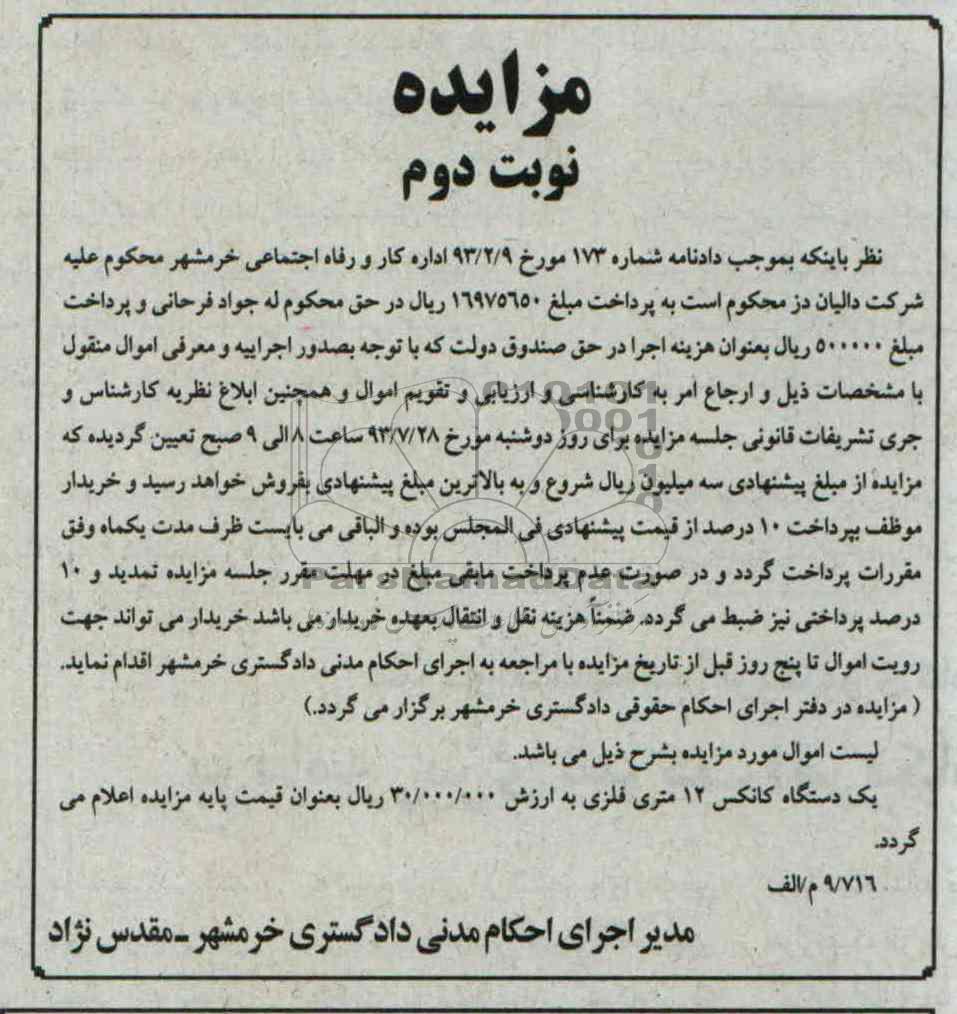 مزایده
نوبت دوم
نظر باینکه بموجب دادنامه شماره ۱۷۳ مورخ ۹۳/۲/۹ اداره کار و رفاه اجتماعی خرمشهر محکوم علیه
شرکت دالیان دز محکوم است به پرداخت مبلغ ۱۶۹۷۵۶۵۰ ریال در حق محکوم له جواد فرحانی و پرداخت
مبلغ ۵۰۰۰۰۰ ریال بعنوان هزینه اجرا در حق صندوق دولت که با توجه بصدور اجراییه و معرفی اموال منقول
با مشخصات ذیل و ارجاع امر به کارشناسی و ارزیابی و تقویم اموال و همچنین ابلاغ نظریه کارشناس و
جری تشریفات قانونی جلسه مزایده برای روز دوشنبه مورخ ۹۳/۷/۲۸ ساعت ۸ الی ۹ صبح تعیین گردیده که
مزایده از مبلغ پیشنهادی سه میلیون ریال شروع و به بالاترین مبلغ پیشنهادی بفروش خواهد رسید و خریدار
موظف بپرداخت ۱۰ درصد از قیمت پیشنهادی فی المجلس بوده و الباقی می بایست ظرف مدت یکماه وفق
مقررات پرداخت گردد و در صورت عدم پرداخت مابقی مبلغ در مهلت مقرر جلسه مزایده تمدید و ۱۰
درصد پرداختی نیز ضبط می گردد. ضمناً هزینه نقل و انتقال بعهده خریدار می باشد خریدار می تواند جهت
رویت اموال تا پنج روز قبل از تاریخ مزایده با مراجعه به اجرای احکام مدنی دادگستری خرمشهر اقدام نماید.
( مزایده در دفتر اجرای احکام حقوقی دادگستری خرمشهر برگزار می گردد.)
لیست اموال مورد مزایده بشرح ذیل می باشد.
یک دستگاه کانکس ۱۲ متری فلزی به ارزش ۳۰/۰۰۰/۰۰۰ ریال بعنوان قیمت پایه مزایده اعلام می
گردد.
۹/۷۱۶ م/الف
مدیر اجرای احکام مدنی دادگستری خرمشهر ـ مقدس نژاد
ParsNamadData